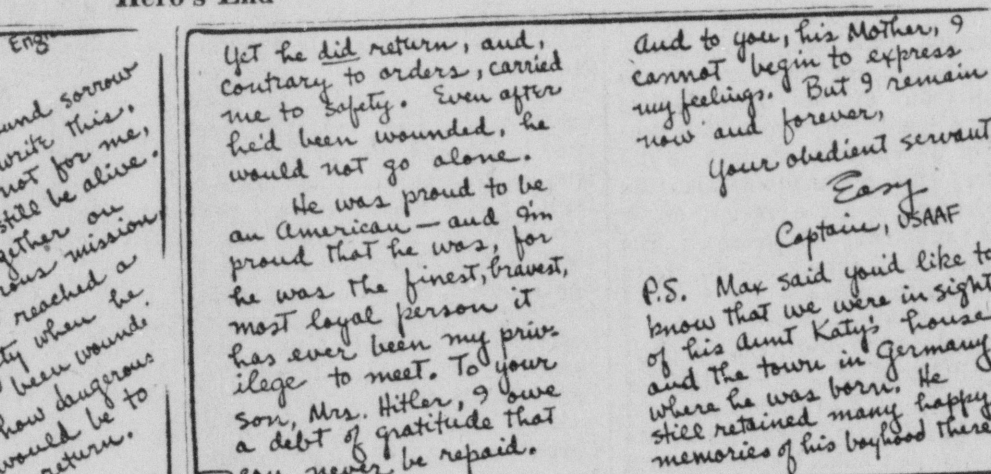 Hero's End
Eng
and sorrow
write this.
not for me,
still be alive.
gether on
rous mission,
reached a
ty when he
been wound
how dangerous
would be to
return.
Yet he did return, and,
contrary to orders, carried
me to safety. Even after
he'd been wounded, he
would not go alone.
He was proud to be
an American — and I'm
proud that he was, for
he was the finest, bravest,
most loyal person it
has ever been my priv-
ilege to meet. To your
son, Mrs. Hitler, I owe
a debt of gratitude that
can never be repaid.
And to you, his Mother, I
cannot begin to express
my feelings. But I remain
now and forever,
Your obedient servant
Easy
Captain, USAAF
P.S. Max said you'd like to
know that we were in sight
of his Aunt Katy's house
and the town in Germany
where he was born. He
still retained many happy
memories of his boyhood there